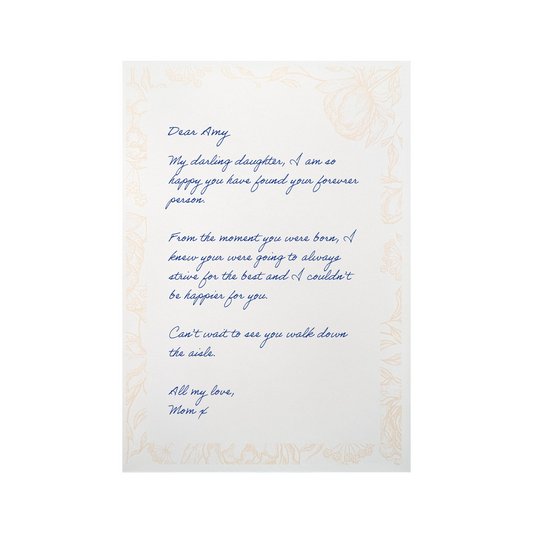 Dear Amy
My darling daughter, I am so
happy you have found your forevrer
person.
From the moment you were born, I
knew your were going to always
strive for the best and I couldn't
be happier for you.
Can't wait to see you walk down
the aisle.
All my love,
Mom x